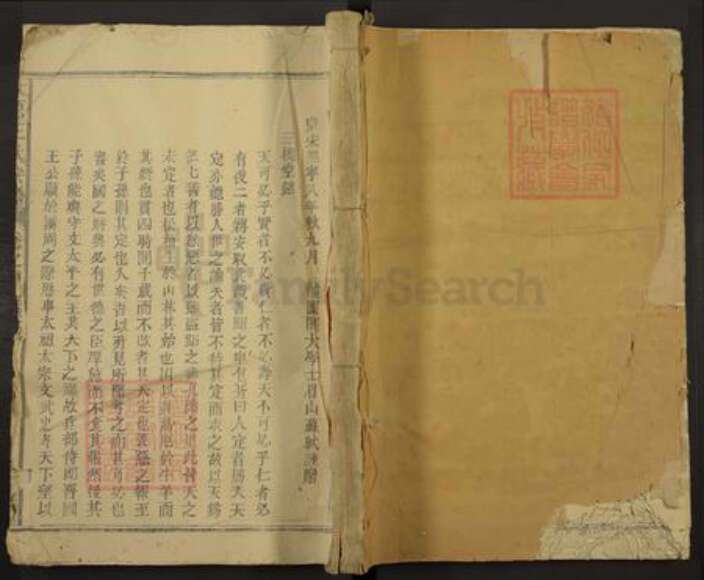 皇宋熙寧八年秋九月 龍圖閣大學士眉山蘇軾謹贈
三槐堂銘
天可必乎賢者不必貴仁者不必壽天不可必乎仁者必
有後二者將安取衷哉吾聞之申包胥曰人定者勝天天
定亦能勝人世之論天者皆不待其定而求之故以天為
茫茫善者以怠惡者以肆盜跖之壽孔顏之厄此皆天之
未定者也松柏生於山林其始也困於蓬蒿厄於牛羊而
其終也貫四時閱千歲而不改者其天定也善惡之報至
於子孫則其定也久矣吾以所見所聞考之而其可必也
審矣國之將興必有世德之臣厚施而不食其報然後其
子孫能與守文太平之主共天下之福故兵部侍郎晉國
王公顯於漢周之際歷事太祖太宗文武忠孝天下望以
FamilySearch